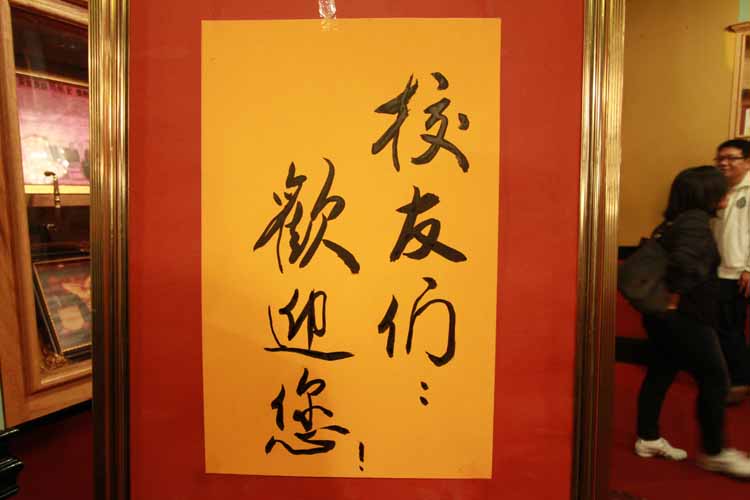 校友们：
歡迎您！